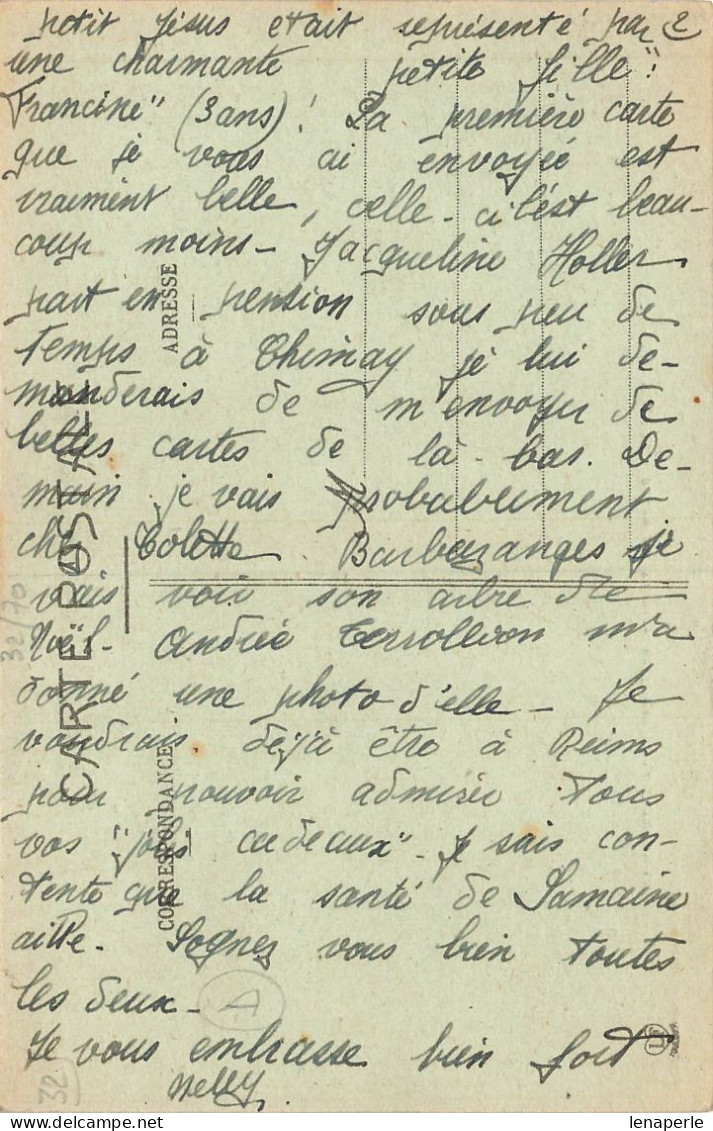 petit Jésus était représenté par 2
une charmante petite fille "
Francine" (3 ans) ! La première carte
que je vous ai envoyée est
vraiment belle, celle-ci l'est beau-
coup moins - Jacqueline Holler
part en pension sous peu de
temps à Chimay je lui de-
manderais de m'envoyer de
belles cartes de là-bas. De-
main je vais probablement
chez Colette Barbaranges je
vais voir son arbre de
Noël - Andrée m'a
donné une photo d'elle - Je
voudrais déjà être à Reims
pour pouvoir admirer tous
vos "jolis cadeaux" - Je sais con-
tente que la santé de Samaine
aille. Sognez vous bien toutes
les deux -
A
Je vous embrasse bien fort
Nelly
CARTE POSTALE
ADRESSE
CORRESPONDANCE
32/70
32
lenaperle